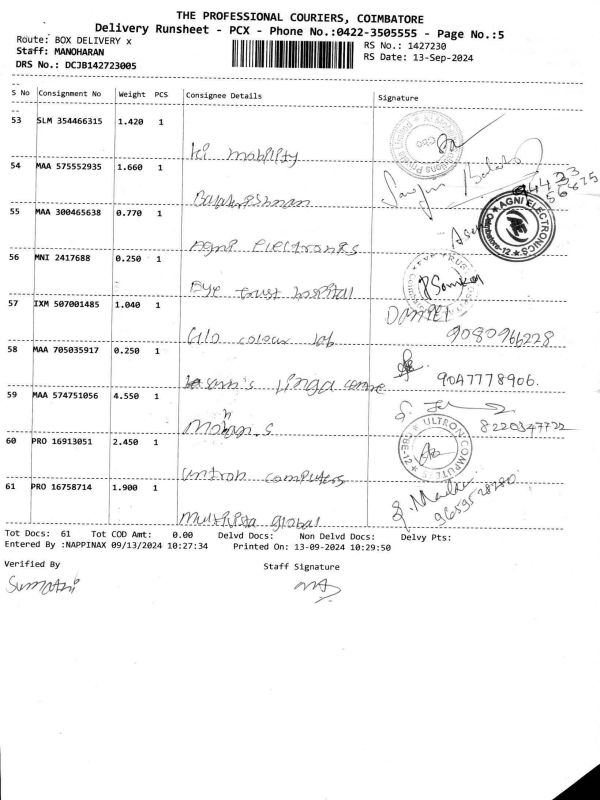 THE PROFESSIONAL COURIERS, COIMBATORE
Delivery Runsheet - PCX - Phone No.:0422-3505555 - Page No.:5
Route: BOX DELIVERY x
RS No.: 1427230
Staff: MANOHARAN
RS Date: 13-Sep-2024
DRS No.: DCJB142723005
S No Consignment No Weight PCS Consignee Details Signature
53 SLM 354466315 1.420 1
ki mobility
54 MAA 575552935 1.660 1
Balakrishnan
94433
56675
55 MAA 300465638 0.770 1
AGNI ELECTRONICS
Coimbatore-12
Agni Electronics
56 MNI 2417688 0.250 1
Eye trust hospital
57 IXM 507001485 1.040 1
DANIEL
9080966228
Glo colour lab
58 MAA 705035917 0.250 1
9047778906.
centre
59 MAA 574751056 4.550 1
8220347722
Mohan.S
60 PRO 16913051 2.450 1
ULTRON COMPUTE
CBE-12
untron computers
61 PRO 16758714 1.900 1
9659528280
Multivista global
Tot Docs: 61 Tot COD Amt: 0.00 Delvd Docs: Non Delvd Docs: Delvy Pts:
Entered By :NAPPINAX 09/13/2024 10:27:34 Printed On: 13-09-2024 10:29:50
Verified By Staff Signature